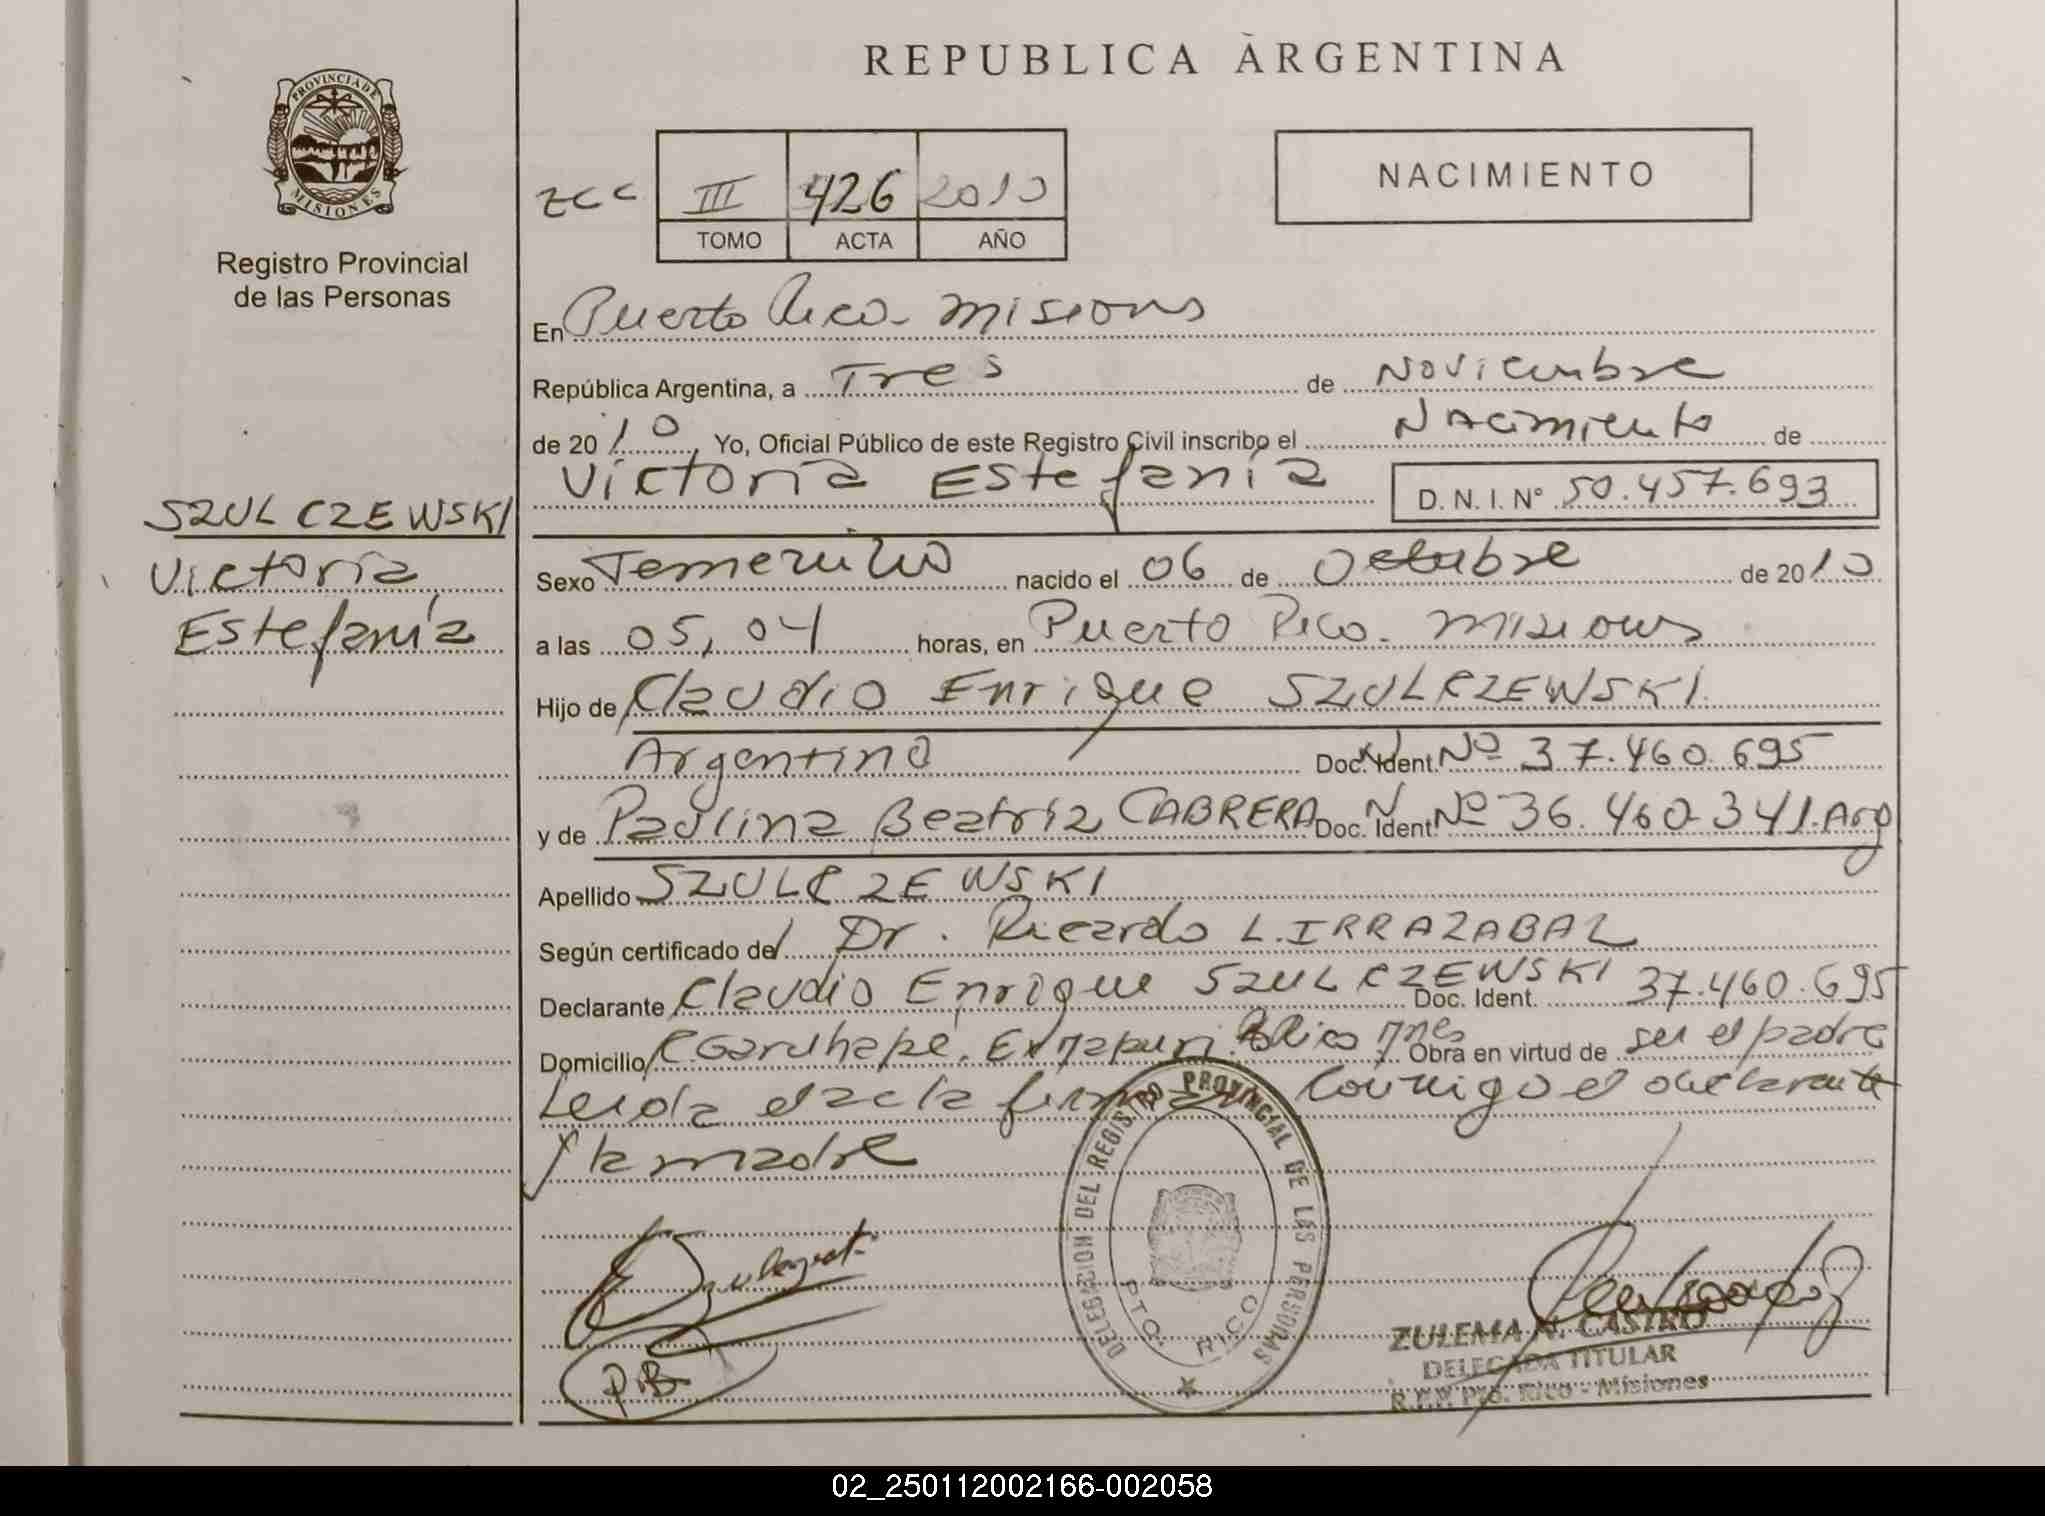 REPUBLICA ARGENTINA
PROVINCIA DE MISIONES
Registro Provincial
de las Personas
III 426 2010
TOMO ACTA AÑO
NACIMIENTO
En Puerto Rico - Misiones
República Argentina, a Tres de Noviembre
de 2010 Yo, Oficial Público de este Registro Civil inscribo el Nacimiento de
Victoria Estefanía D. N. I. Nº 50.457.693
SZULCZEWSKI
Victoria
Estefanía
Sexo Femenino nacido el 06 de Octubre de 2010
a las 05,04 horas, en Puerto Rico. Misiones
Hijo de Claudio Enrique SZULCZEWSKI
Argentino Doc. Ident. Nº 37.460.695
y de Paulina Beatriz CABRERA Doc. Ident. Nº 36.460.341. Arg
Apellido SZULCZEWSKI
Según certificado del Dr. Ricardo L. IRRAZABAL
Declarante Claudio Enrique SZULCZEWSKI Doc. Ident. 37.460.695
Domicilio Garuhapé. Rico Mnes Obra en virtud de ser el padre
Leida el acta firman conmigo el declarante
y la madre
DELEGACION DEL REGISTRO PROVINCIAL DE LAS PERSONAS
PTO. RICO
ZULEMA N. CASTRO
DELEGADA TITULAR
R.P.P. Pto. Rico - Misiones
P.B
02_250112002166-002058